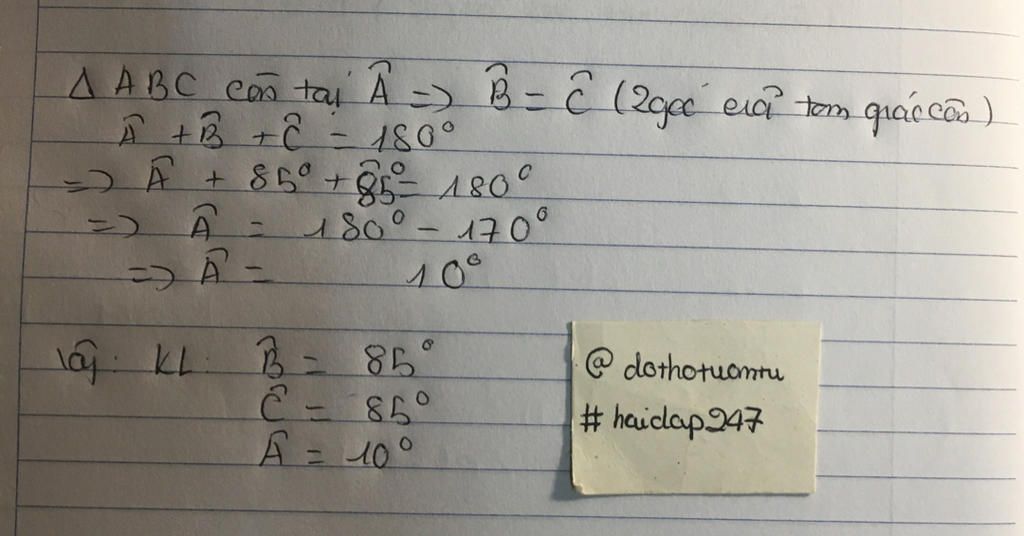 Δ ABC cân tại Â => B̂ = Ĉ (2 góc của tam giác cân)
Â + B̂ + Ĉ = 180°
=> Â + 85° + 85° = 180°
=> Â = 180° - 170°
=> Â = 10°
Vậy: KL: B̂ = 85°
Ĉ = 85°
Â = 10°
@ dothotuomtu
# haidap247